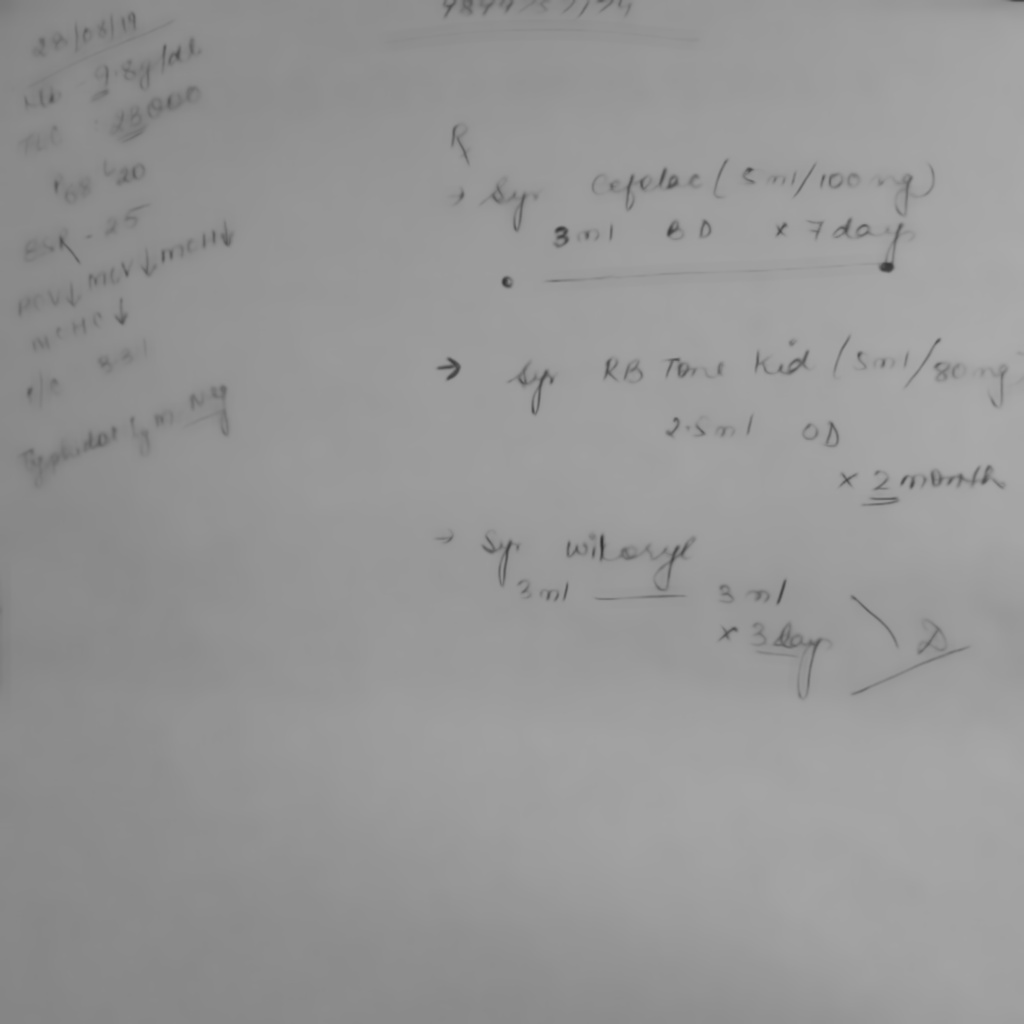 28/08/19
Hb 9.8g/dl
TLC 28000
P68 L20
ESR - 25
PCV↓ MCV↓ MCH↓
MCHC↓
P/C 3.31
Typhidot IgM Neg
R
→ Syr Cefolac (5ml/100mg)
3ml BD x 7 days
→ Syr RB Tone Kid (5ml/80mg)
2.5ml OD
x 2 month
→ Syr Wikoryl
3ml — 3ml
x 3 days